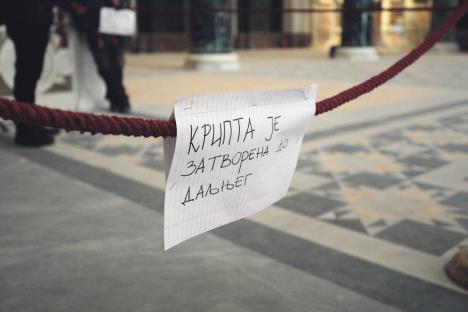 КРИПТА ЈЕ
ЗАТВОРЕНА ДО
ДАЉЊЕГ